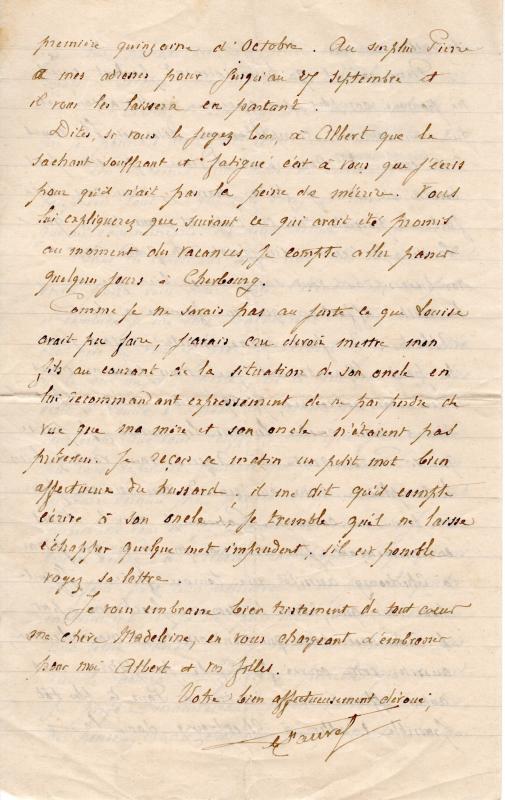 première quinzaine d'Octobre. Au surplus Pierre
a mes adresses pour jusqu'au 27 septembre et
il vous les laissera en partant.
Dites, si vous le jugez bon, à Albert que le
sachant souffrant et fatigué c'est à vous que j'écris
pour qu'il n'ait pas la peine de m'écrire. Vous
lui expliquerez que, suivant ce qui avait été promis
au moment des vacances, je compte aller passer
quelques jours à Cherbourg.
Comme je ne savais pas au juste ce que Louise
avait pu faire, j'avais cru devoir mettre mon
fils au courant de la situation de son oncle en
lui recommandant expressément de ne pas perdre de
vue que ma mère et son oncle n'étaient pas
prévenus. Je reçois ce matin un petit mot bien
affectueux du hussard. il me dit qu'il compte
écrire à son oncle. Je tremble qu'il ne laisse
échapper quelque mot imprudent. s'il est possible
voyez sa lettre.
Je vous embrasse bien tristement de tout coeur
ma chère Madeleine, en vous chargeant d'embrasser
pour moi Albert et vos filles.
Votre bien affectueusement dévoué,